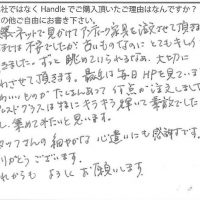 社ではなく Handle でご購入頂いたご理由はなんですか？
の他ご自由にお書き下さい。
ネットで見かけアンティーク家具を注文させて頂きま
不安でしたが 古いものなのに とてもキレイ
きました。ずっと眺めていられるなぁ、大切に
させて頂きます。最近は毎日 HP を見ていま
いいものが たくさんあって
ガラスは特にキラキラ輝いて素敵でした
し、集めてみたいと思います。
タッフさんの 細やかな 心遣いにも 感謝です
りがとうございます。
れからも よろしくお願いします